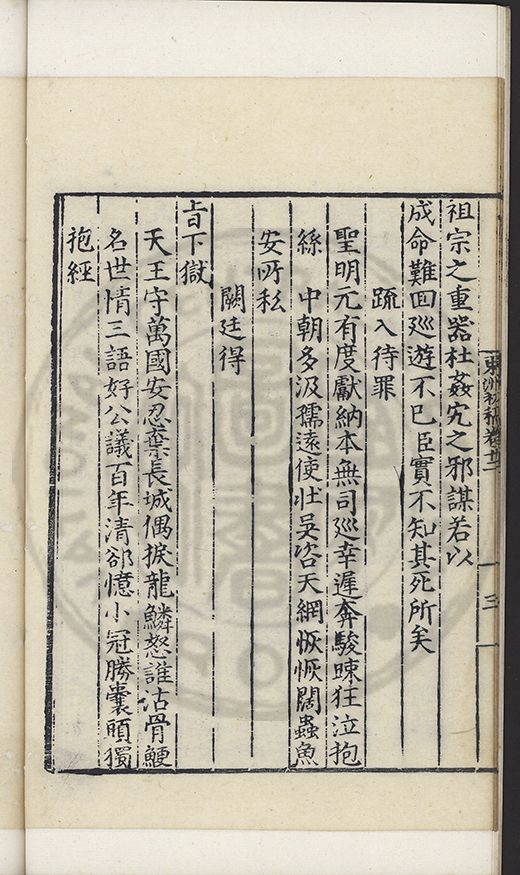 東洲初稿卷
三
祖宗之重器杜姦宄之邪謀若以
成命難回廵遊不已臣實不知其死所矣
疏入待罪
聖明元有度獻納本無司廵幸遲奔駿踈狂泣抱
絲 中朝多汲孺遠使壯吳咨天網恢恢闊蟲魚
安所私
闕廷得
旨下獄
天王守萬國安忍棄長城偶捩龍鱗怒誰沽骨鯁
名世情三語好公議百年清郤憶小冠勝囊頭獨
抱經